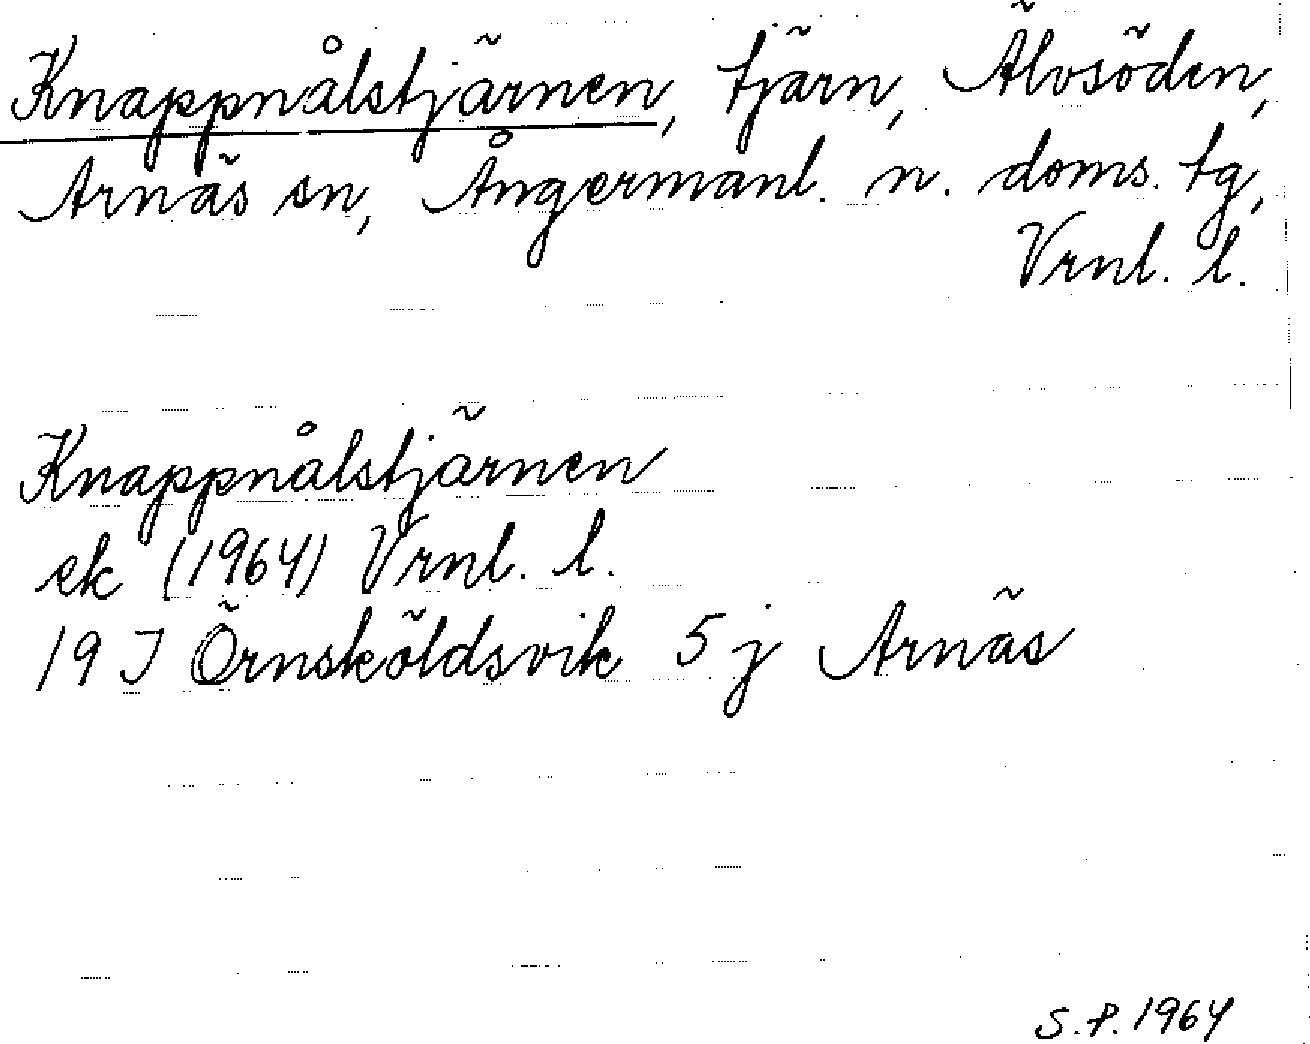 Knappnålstjärnen, tjärn, Älvsöden,
Arnäs sn, Ångermanl. n. doms. tg,
Vrnl. l.
Knappnålstjärnen
ek (1964) Vrnl. l.
19 J Örnsköldsvik 5 j Arnäs
S.P. 1964